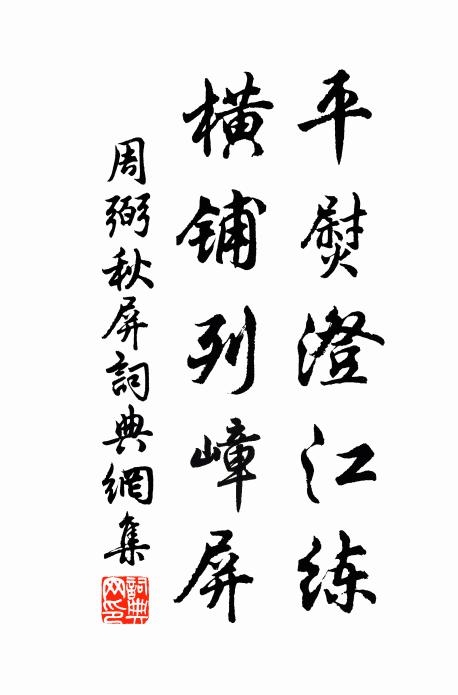 平熨澄江练
横铺列嶂屏
周弼秋屏詞典網集
詞典網印